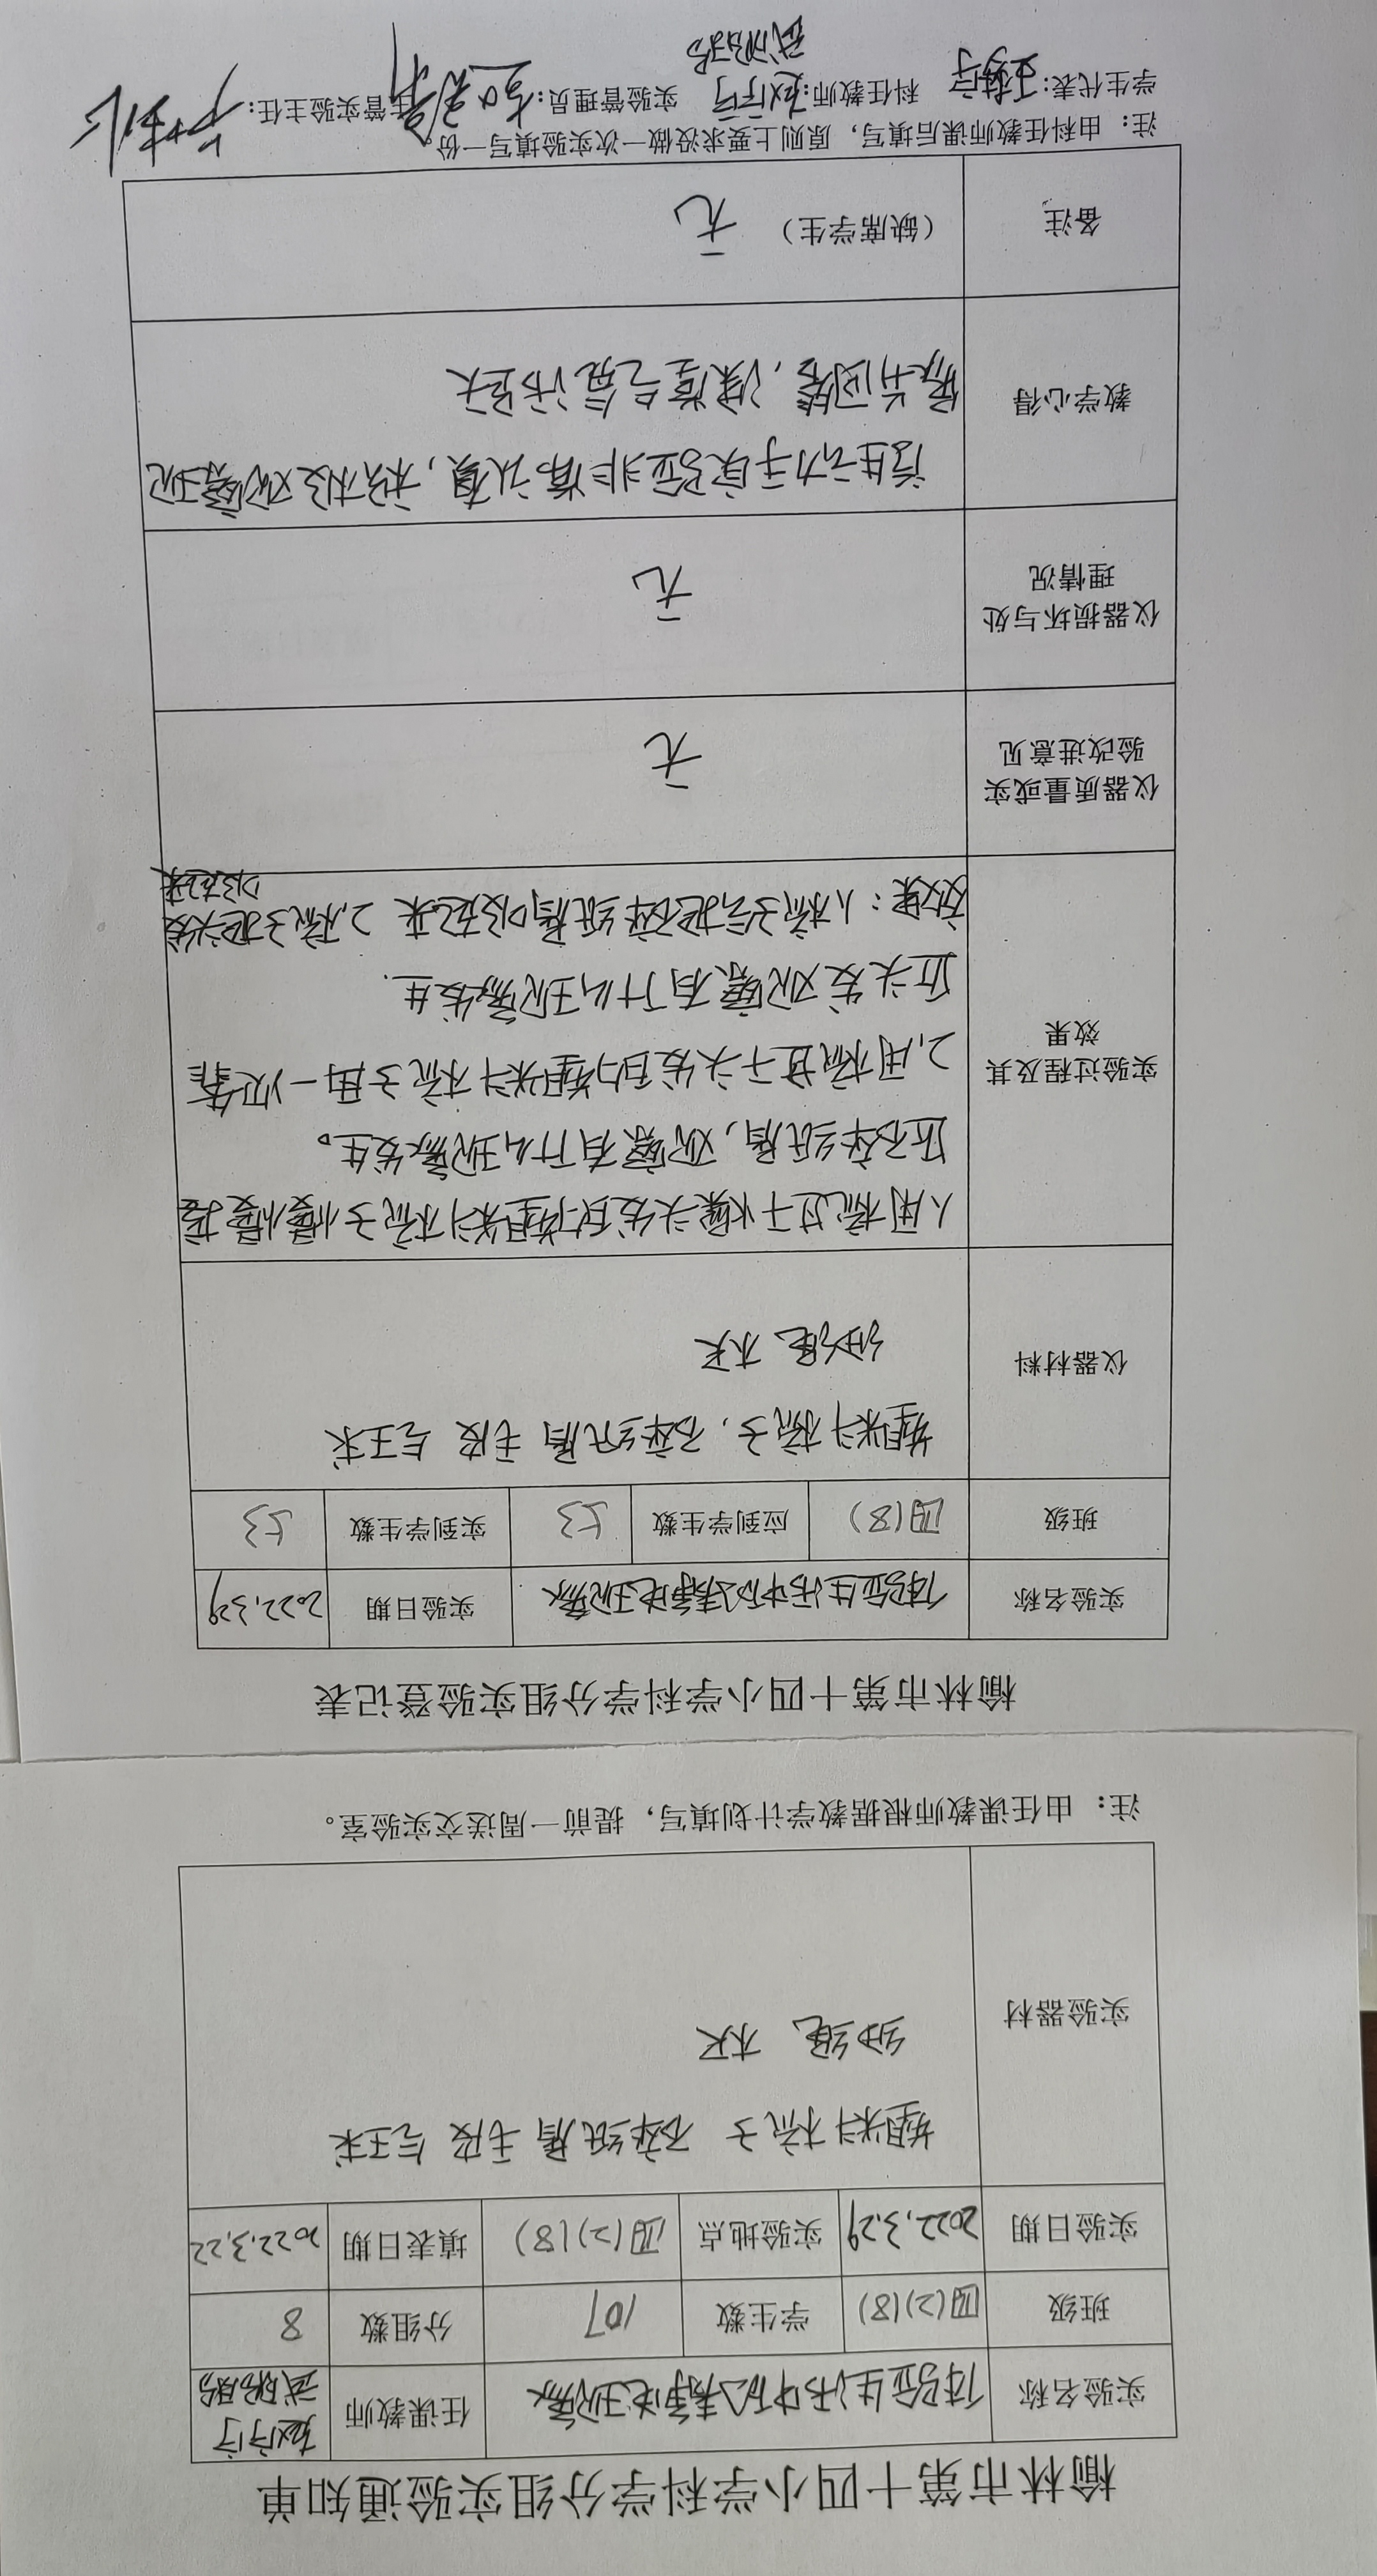 榆林市第十四小学科学分组实验通知单
实验名称 体验生活中的静电现象 任课教师 赵疗疗 武鹏鹏
班级 四(2)(8) 学生数 107 分组数 8
实验日期 2022.3.29 实验地点 四(2)(8) 填表日期 2022.3.22
实验器材 塑料梳子 碎纸屑 毛皮 气球
细绳 木尺
注：由任课教师根据教学计划填写，提前一周送交实验室。
榆林市第十四小学科学分组实验登记表
实验名称 体验生活中的静电现象 实验日期 2022.3.29
班级 四(8) 应到学生数 53 实到学生数 53
仪器材料 塑料梳子，碎纸屑 毛皮 气球
细绳 木尺
实验过程及其
效果
1.用梳过干燥头发的塑料梳子慢慢接
近碎纸屑，观察有什么现象发生。
2.用梳过干头发的塑料梳子再一次靠
近头发观察有什么现象发生.
效果：1.梳子会把碎纸屑吸起来 2.梳子把头发
吸起来
仪器质量或实
验改进意见
无
仪器损坏与处
理情况
无
教学心得
学生动手实验非常认真，积极观察现
象并回答，课堂气氛活跃
备注 （缺席学生） 无
注：由科任教师课后填写，原则上要求没做一次实验填写一份。
学生代表： 科任教师：赵疗疗 实验管理员： 主管实验主任：
武鹏鹏